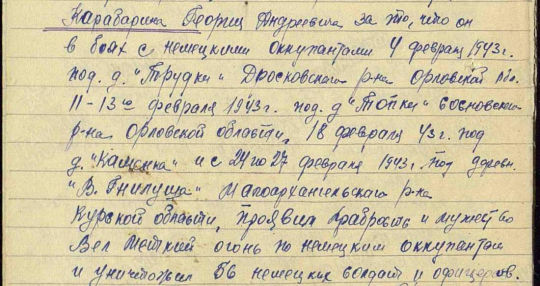 Карабарина Георгия Андреевича за то, что он
в боях с немецкими оккупантами 4 февраля 1943г.
под. д. "Трудки" Дросковского р-на Орловской обл.
11-13го февраля 1943г. под. д "Топки" Сосновского
р-на Орловской области, 18 февраля 43г. под
д. "Каменка" и с 24 по 27 февраля 1943г. под деревн.
"В. Гнилуша" Малоархангельского р-на
Курской области, проявил храбрость и мужество
Вел меткий огонь по немецким оккупантам
и уничтожил 56 немецких солдат и офицеров.